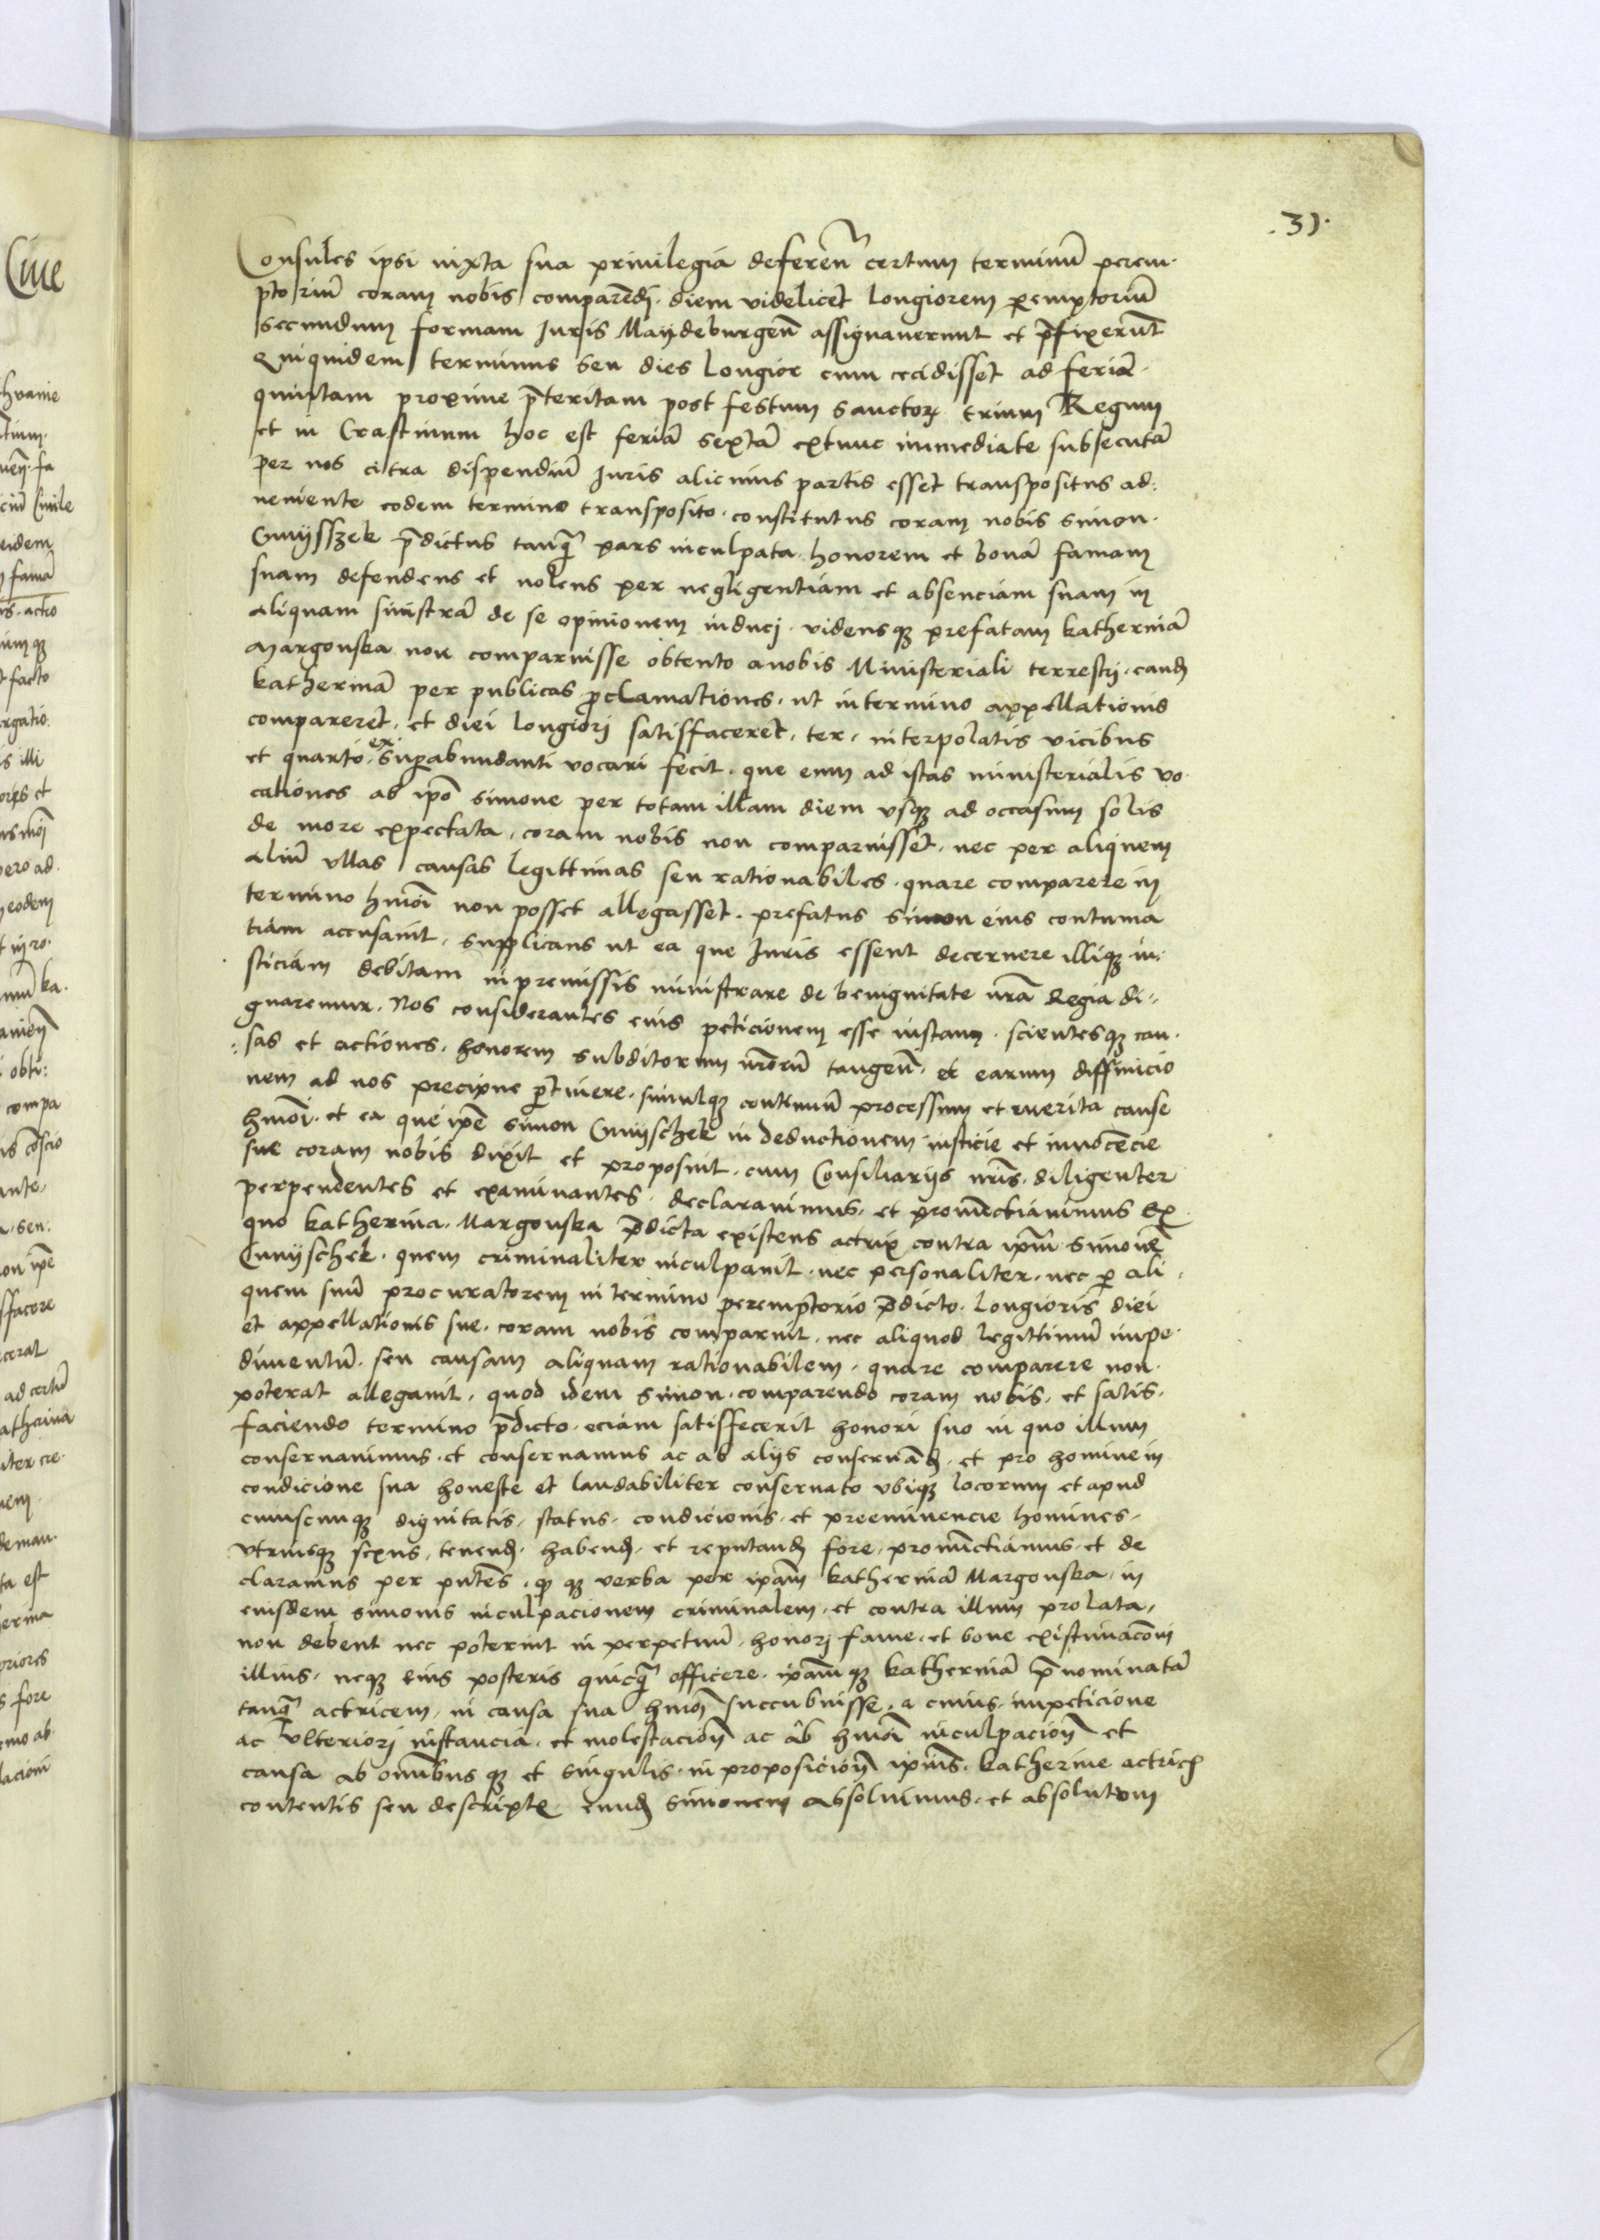 .31.
Consules ipsi iuxta sua priuilegia deferen̄ certum terminū perem
ptoriū coram nobis comparēdj · diem videlicet longiorem ꝑemptoriū
secundum formam Iuris Maydeburgeñ assignauerunt et p̄fixerūt
Quiquidem terminus seu dies longior cum cecidisset ad feriā ·
quintam proxime p̄teritam post festum sanctoꝝ trium Regum
et in Crastinum hoc est feriā sextā extunc immediate subsecutā
per nos citra dispendiū Iuris alicuius partis esset transpositus ad:
ueniente eodem termino transposito · constitutus coram nobis simon ·
Gnuyssek p̄dictus tanq̄ pars inculpata · honorem et bonā famam
suam defendens et nolens per negligentiam et absenciam suam in
aliquam sinistrā de se opinionem inducj · vidensqꝫ prefatam katherinā
Margonska non comparuisse obtento a nobis Ministeriali terrestrj · eandꝫ
katherinā per publicas proclamationes · ut in termino appellationis
compareret · et diei longiorj satisfaceret · ter · interpolatis vicibus
et quarto · ex suꝑabundanti vocari fecit · que cum ad istas ministerialis vo
cationes ab ip̄o simone per totam illam diem vsqꝫ ad occasum solis
de more expectata · coram nobis non comparuisset · nec per aliquem
aliū vllas causas legittimas seu rationabiles · quare comparere in
termino hmōi non posset allegasset · prefatus simon eius contuma
tiam accusauit · supplicans ut ea que Iuris essent decernere illiqꝫ iu:
sticiam debitam in premissis ministrare de benignitate nrā Regia di:
gnaremur · Nos considerantes eius peticionem esse iustam · scientesqꝫ cau
:sas et actiones · honorem subditorum nrorū tangeñ · et earum diffinicio
nem ad nos precipue ꝑtinere · simulqꝫ continuū processum et merita cause
hmōi · et ea que ip̄e simon Gnuyschek in deductionem iusticie et innocēcie
sue coram nobis dixit et proposuit · cum Consiliarijs nrīs · diligenter
perpendentes et examinantes · declarauimus · et pronūctiauimus Ex
quo katherina · Margonska p̄dicta existens actrix contra ip̄m simonē
Gnuyschek · quem criminaliter inculpauit · nec personaliter · nec ꝑ ali
quem suū procuratorem in termino peremptorio p̄dicto · longioris diei
et appellationis sue · coram nobis comparuit · nec aliquod legittimū impe
dimentū · seu causam aliquam rationabilem · quare comparere non ·
poterat allegauit · quod idem simon · comparendo coram nobis · et satis
faciendo termino p̄dicto · eciam satisfecerit honori suo in quo illum
conseruauimus · et conseruamus ac ab alijs conseruādꝫ · et pro homine in
condicione sua honeste et laudabiliter conseruato vbiqꝫ locorum et apud
cuiuscunqꝫ dignitatis · status · condicionis · et preeminencie homines ·
vtriusqꝫ sexus · tenendꝫ · habendꝫ · et reputandꝫ fore · pronūctiamus · et de
claramus per pn̄tes · qꝫ verba per ip̄am katherinā Margonska · in
eiusdem simonis inculpacionem criminalem · et contra illum prolata ·
non debent nec poterint in perpetuū · honorj fame · et bone existimacōni
illius · neqꝫ eius posteris quicq̄ officere · ip̄amqꝫ katherinā p̄nominatā
tanq̄ actricem · in causa sua hmōi succubuisse · a cuius impeticione
ac vlteriorj instancia · et molestacioñ ac ab hmōi inculpacioñ et
causa ab omībusqꝫ et singulis · in proposicioñ ip̄ius · katherine actricꝫ
contentis seu descriptꝭ eundꝫ simonem absoluimus · et absolutum